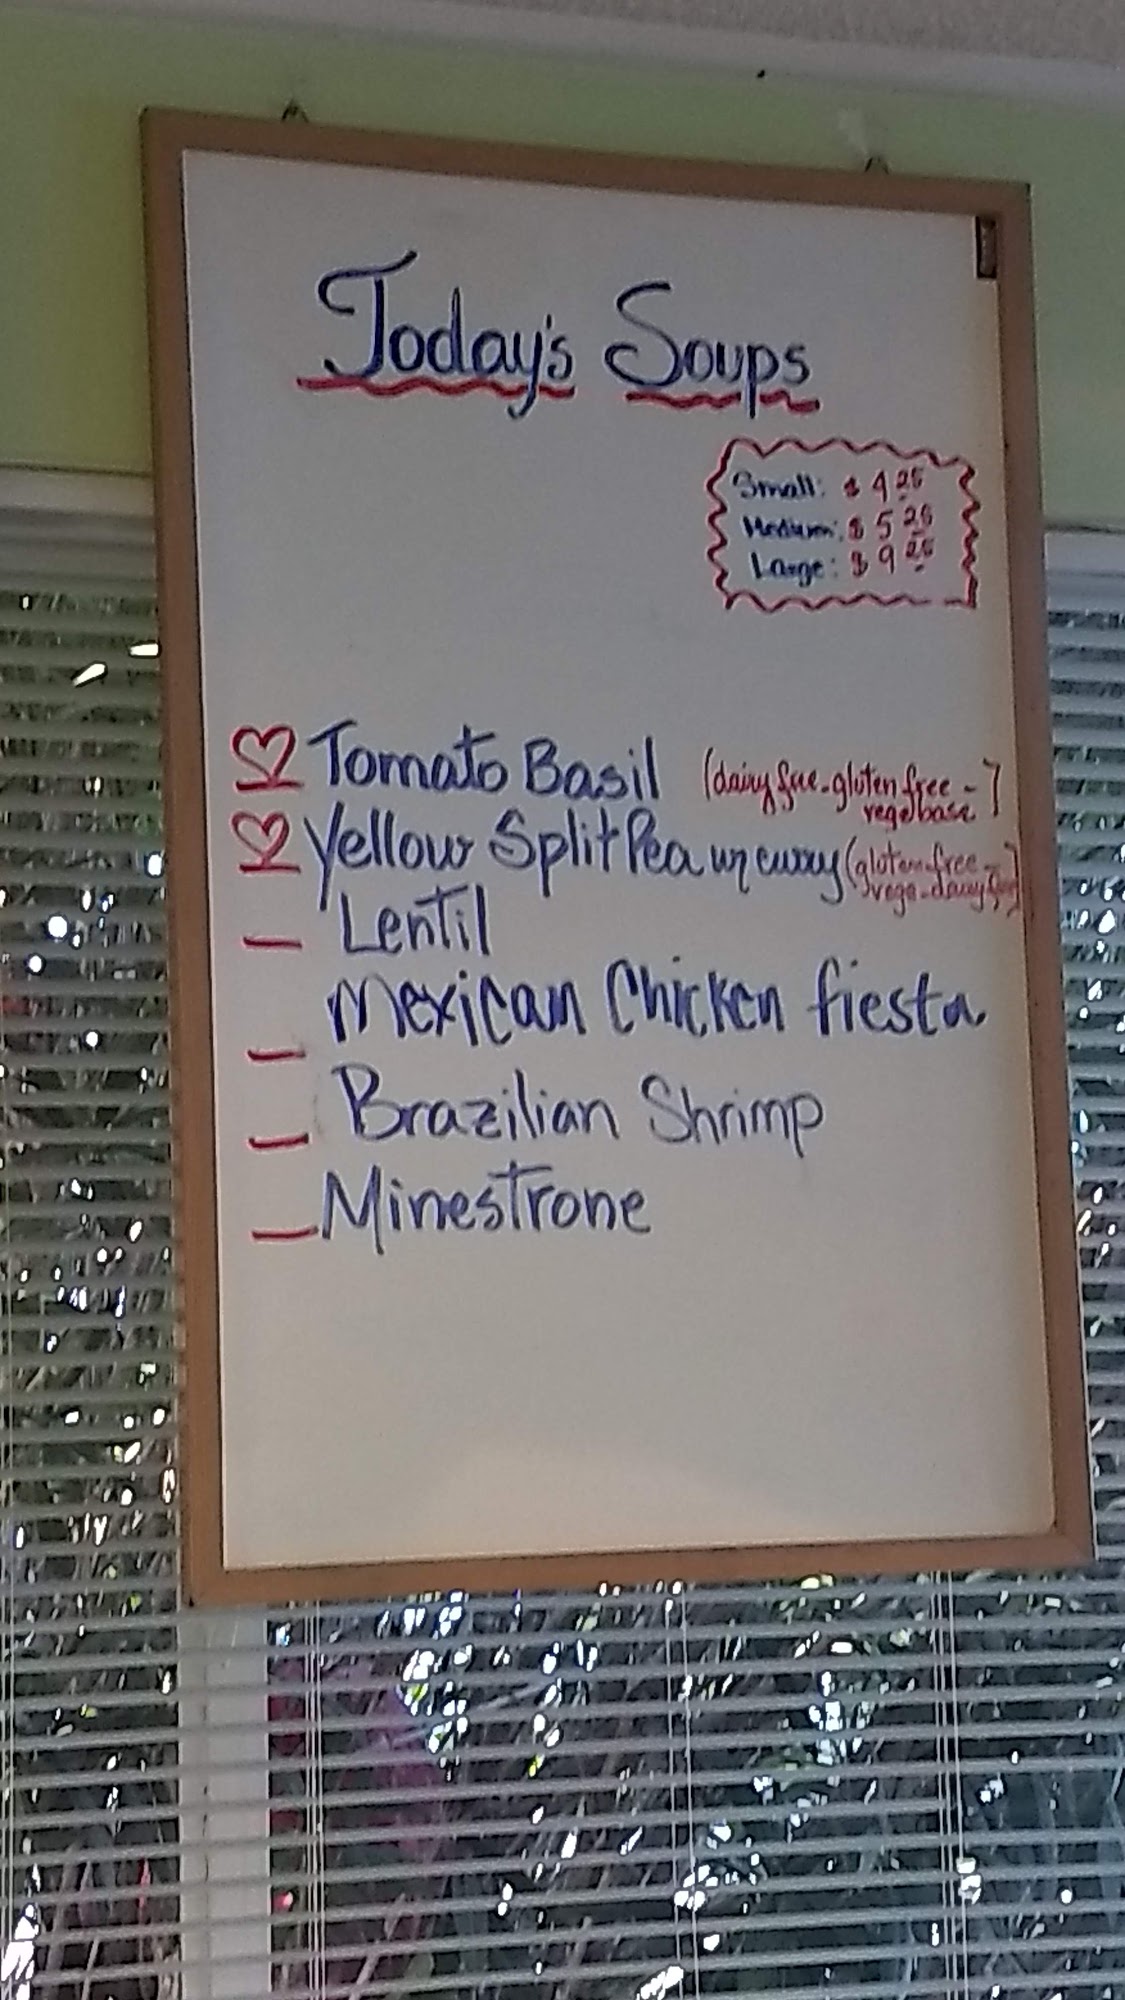 Today's Soups
Small: $ 4 25
Medium: $ 5 25
Large: $ 9 25
Tomato Basil (dairy free - gluten free - vege base)
Yellow Split Pea w/ curry (gluten free - vege - dairy free)
Lentil
Mexican Chicken fiesta
Brazilian Shrimp
Minestrone